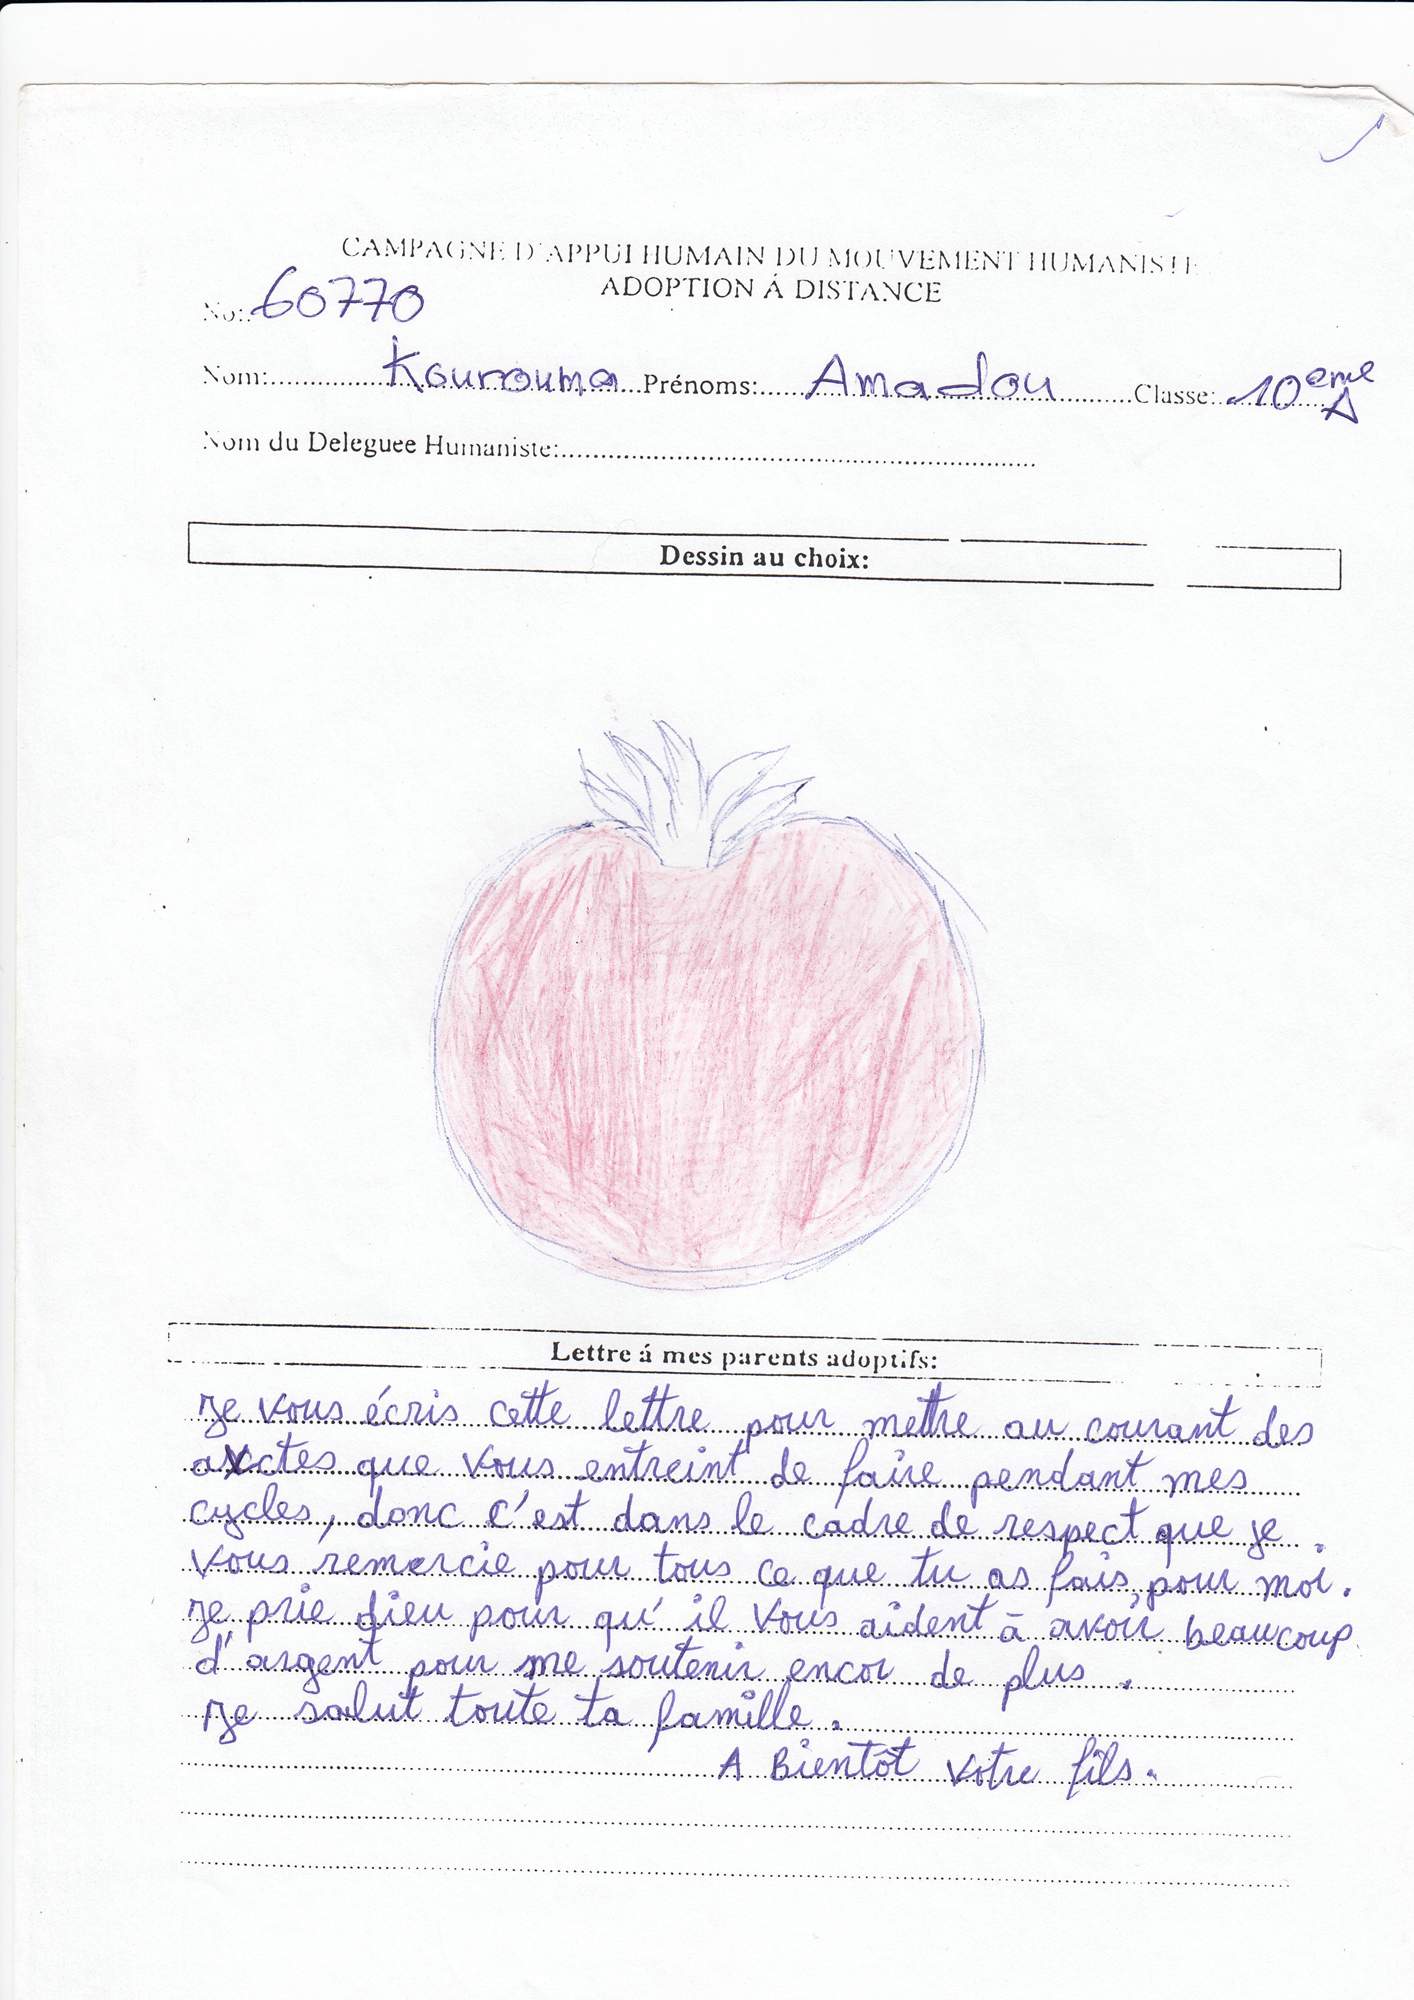 CAMPAGNE D'APPUI HUMAIN DU MOUVEMENT HUMANISTE
ADOPTION Á DISTANCE
No:.60770
Nom:.................Kourouma...Prénoms:......Amadou...........Classe:..10eme A
Nom du Deleguee Humaniste:..........................................................
Dessin au choix:
Lettre á mes parents adoptifs:
Je vous écris cette lettre pour mettre au courant des
actes que vous entreint de faire pendant mes
cycles, donc c'est dans le cadre de respect que je
vous remercie pour tous ce que tu as fais pour moi.
Je prie dieu pour qu'il vous aident à avoir beaucoup
d'argent pour me soutenir encor de plus.
Je salut toute ta famille.
A Bientôt votre fils.